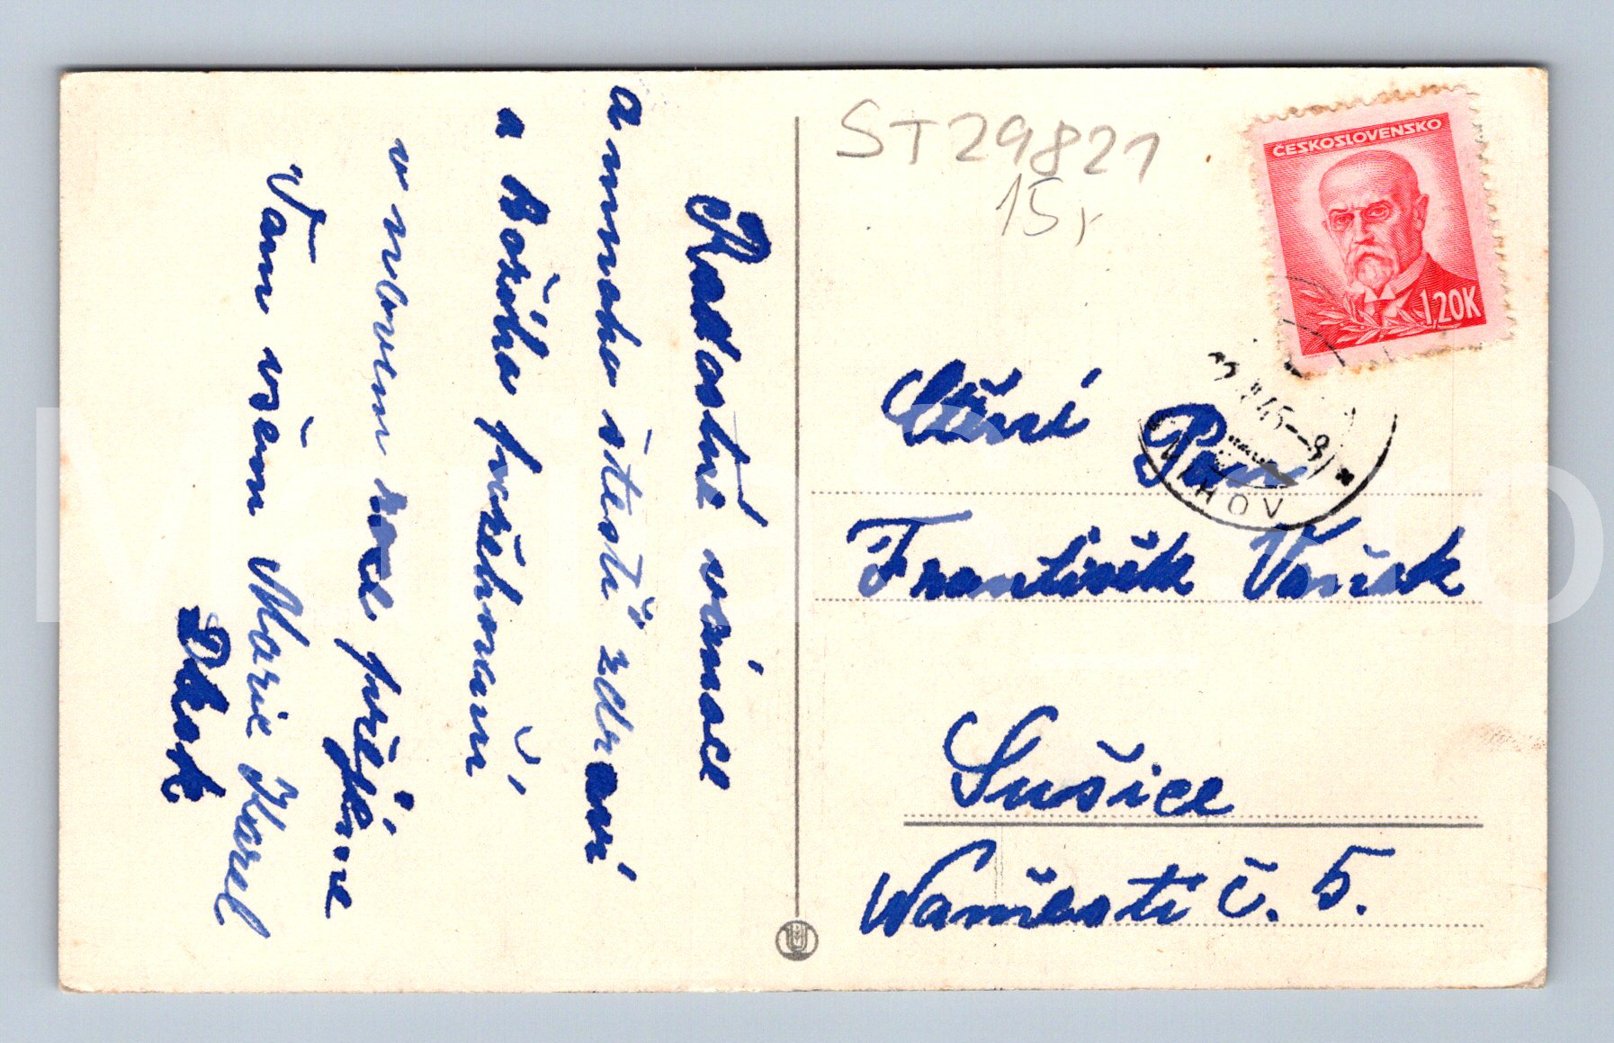 Radostné vánoce
a mnoho štestí zdraví
a Božího požehnaní
v novem roce přejéme
Vam všem Marie Karel
ST29821
15,
ČESKOSLOVENSKO
1.20K
45-8
Ctěný Pan
František Vaněk
Sušice
Naměsti č. 5.